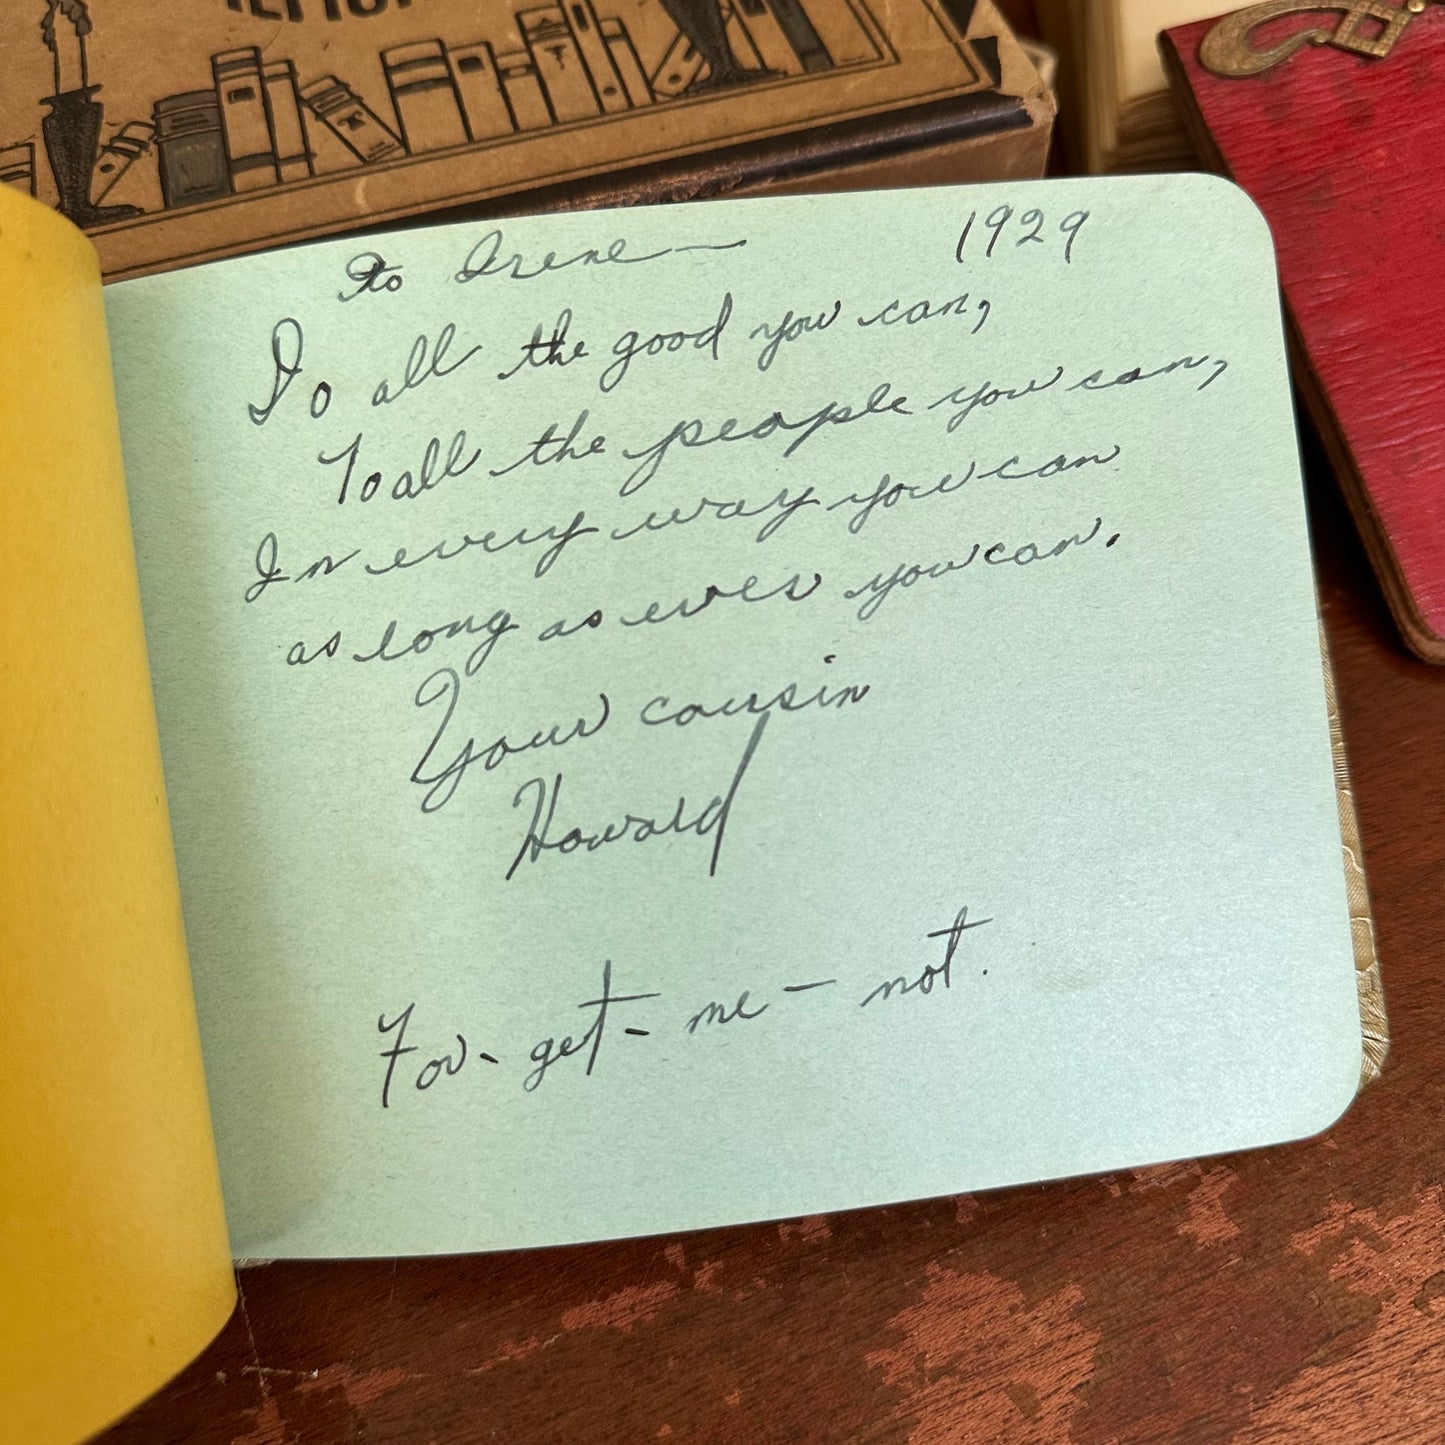 to Irene — 1929
Do all the good you can,
To all the people you can,
In every way you can
as long as ever you can.
Your cousin
Howard
For-get-me-not.